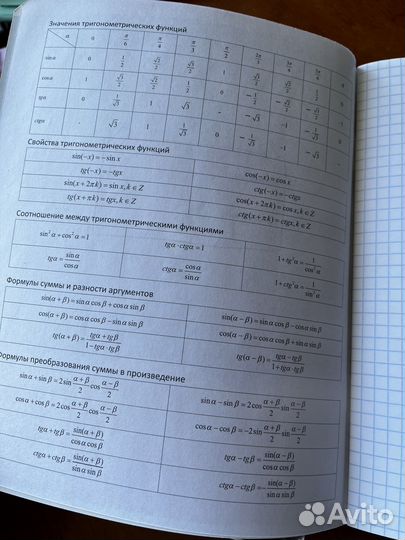 Значения тригонометрических функций
α 0 π/6 π/4 π/3 π/2 2π/3 3π/4 5π/6 π
sinα 0 1/2 √2/2 √3/2 1 √3/2 √2/2 1/2 0
cosα 1 √3/2 √2/2 1/2 0 −1/2 −√2/2 −√3/2 −1
tgα 0 1/√3 1 √3 - −√3 −1 −1/√3
ctgα - √3 1 1/√3 0 −1/√3 −1 −√3
Свойства тригонометрических функций
sin(−x)=−sin x cos(−x)=cos x
tg(−x)=−tgx ctg(−x)=−ctgx
sin(x+2πk)=sin x, k∈Z cos(x+2πk)=cos x, k∈Z
tg(x+πk)=tgx, k∈Z ctg(x+πk)=ctgx, k∈Z
Соотношение между тригонометрическими функциями
sin²α+cos²α=1 tgα·ctgα=1 1+tg²α=1/cos²α
tgα=sinα/cosα ctgα=cosα/sinα 1+ctg²α=1/sin²α
Формулы суммы и разности аргументов
sin(α+β)=sinα cosβ+cosα sinβ sin(α−β)=sinα cosβ−cosα sinβ
cos(α+β)=cosα cosβ−sinα sinβ cos(α−β)=cosα cosβ+sinα sinβ
tg(α+β)=(tgα+tgβ)/(1−tgα·tgβ) tg(α−β)=(tgα−tgβ)/(1+tgα·tgβ)
Формулы преобразования суммы в произведение
sinα+sinβ=2sin (α+β)/2 cos (α−β)/2 sinα−sinβ=2cos (α+β)/2 sin (α−β)/2
cosα+cosβ=2cos (α+β)/2 cos (α−β)/2 cosα−cosβ=−2sin (α+β)/2 sin (α−β)/2
tgα+tgβ=sin(α+β)/(cosα cosβ) tgα−tgβ=sin(α−β)/(cosα cosβ)
ctgα+ctgβ=sin(α+β)/(sinα sinβ) ctgα−ctgβ=−sin(α−β)/(sinα sinβ)
Avito